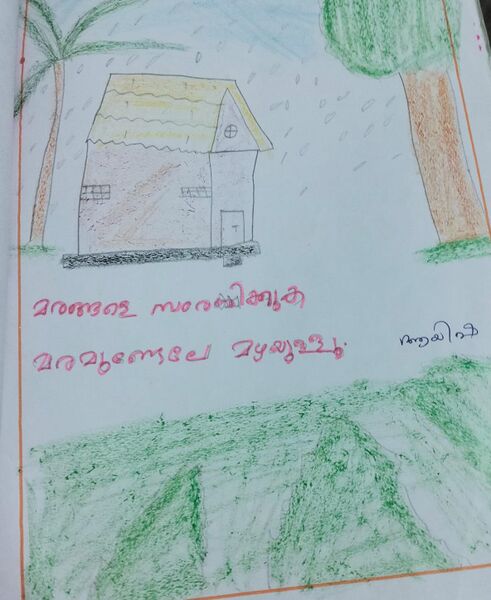 മരങ്ങളെ സംരക്ഷിക്കുക
മരമുണ്ടെലേ മഴയുള്ളു.
ആയിഷ